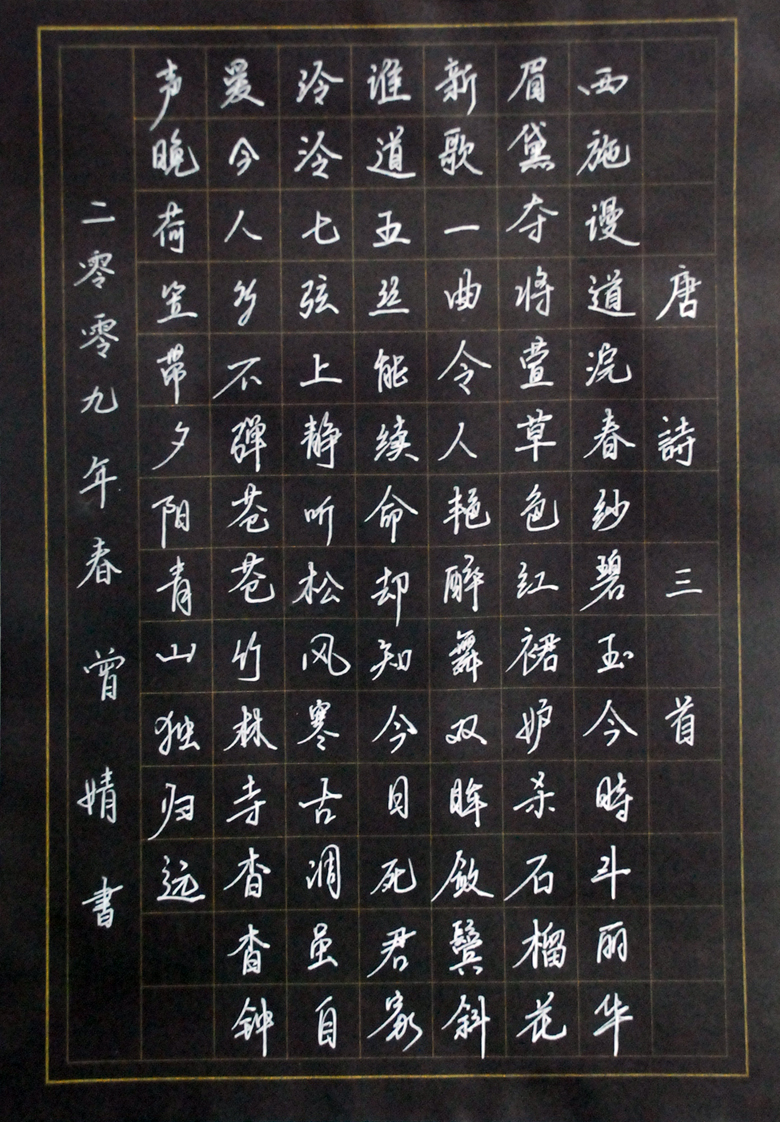 唐詩三首
西施谩道浣春纱碧玉今時斗丽华
眉黛夺将萱草色红裙妒杀石榴花
新歌一曲令人艳醉舞双眸敛鬓斜
谁道五丝能续命却知今日死君家
泠泠七弦上静听松风寒古调虽自
爱今人多不弹苍苍竹林寺杳杳钟
声晚荷笠带夕阳青山独归远
二零零九年春 曾婧書